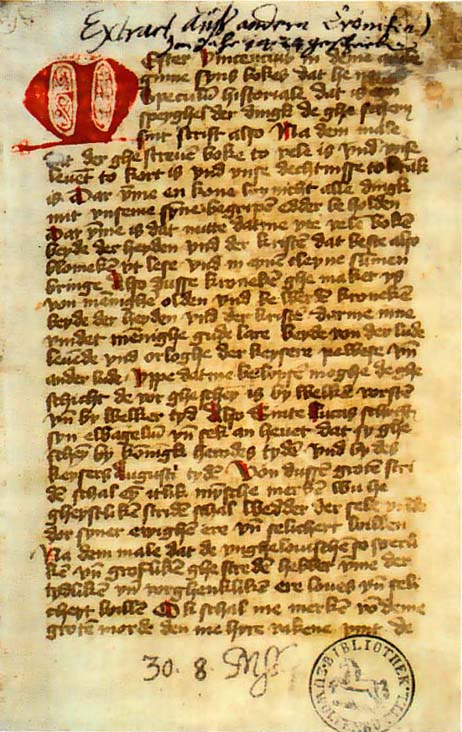 Extract Auß andern Croniken
im Jahr 1424 geschrieben
Mester Vincencius in deme an
ginne syns bokes dat he no
Speculū historiale dat is eyn
speyghel der dingk de ghe scheyn
sint scrift also Na dem male
dat der ghe screuē boke to vele is vnd vnse
leuent to kort is vnd vnse dechtnisse to krāk
is Dar vme en kone wy nicht alle dingk
mit vnseme syne begripen edder be holden
Dar vme is dat nutte datme vte velē bokē
beyde der heyden vnd der kristē dat beste also
blomekē vt lese vnd in eynen cleyne sūmen
bringe Also dusse kroneken ghe maket is
von mēnighe olden vnd be werdē kronekē
beyde der heyden vnd der kristē dar me inne
vindet mēnighe gude lare beyde von der lude
leuēde vnd orloghe der keysere pawese vn̄
ander lude vppe datme be kysse moghe de ghe
schicht de vor ghe scheyn is by welkē vorsten
vn̄ by welker tyd Also Sinte Lucas schrift
syn ewāgeliū vn̄ sek an heuet dat sy ghe
scheyn by koningk herodes tydē vnd by des
keysers Augusti tydē Von dussen groten stri
dē schal Ok itlik mysche merken wu he
gheystlikē stridē schal wedder der sele viēde
dor syner ewighen ere vn̄ selicheit willen
Na dem male dat de vnghelouischē so vrech
ken vn̄ grofliken ghe streden hebbet vme der
tydliken vn̄ vorghenkliken ere loues vn̄ seli
cheyt willen Ok schal me merken vō deme
groten morde den me hyre vakene vint de
30. 8. Mß.
BIBLIOTHEK